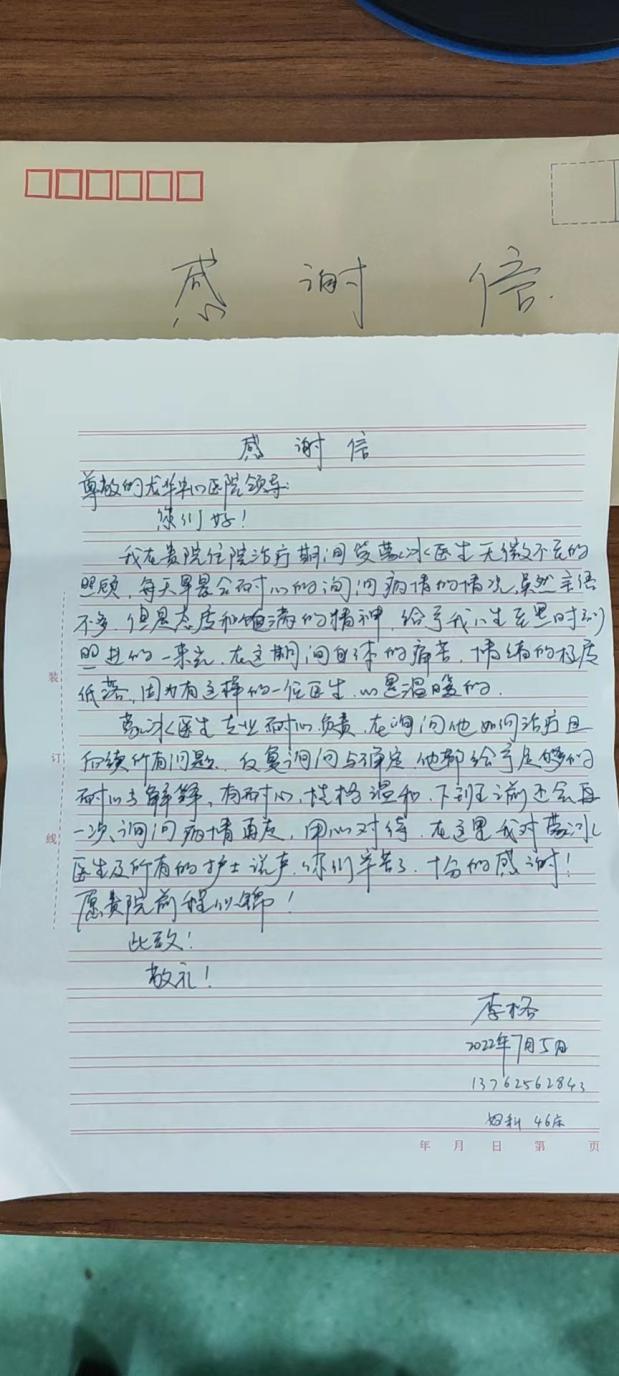 感谢信
感谢信
尊敬的龙华中心医院领导:
你们好!
我在贵院住院治疗期间受 冰医生无微不至的
照顾，每天早晨会耐心的询问病情的情况，虽然言语
不多，但是态度和饱满的精神，给予我人生至黑时刻
照进的一束光，在这期间身体的痛苦，情绪的极度
低落，因为有这样的一位医生，心里温暖的．
冰医生专业耐心负责，在询问他如何治疗且
后续所有问题，反复询问与确定，他都给予足够的
耐心与解释，有耐心，性格温和，下到 前还会再
一次询问病情再走，用心对待，在这里我对 冰
医生及所有的护士说声，你们辛苦了，十分的感谢!
愿贵院前程似锦!
此致!
敬礼!
李格
2022年7月5日
13762562843
妇科 46床
装
订
线
年 月 日 第 页